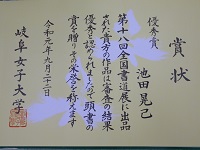 賞状
優秀賞
池田晃己
第十八回全国書道展に出品
された貴方の作品は審査の結果
優秀と認められましたので頭書の
賞を贈りその栄誉を称えます
令和元年九月二十二日
岐阜女子大学